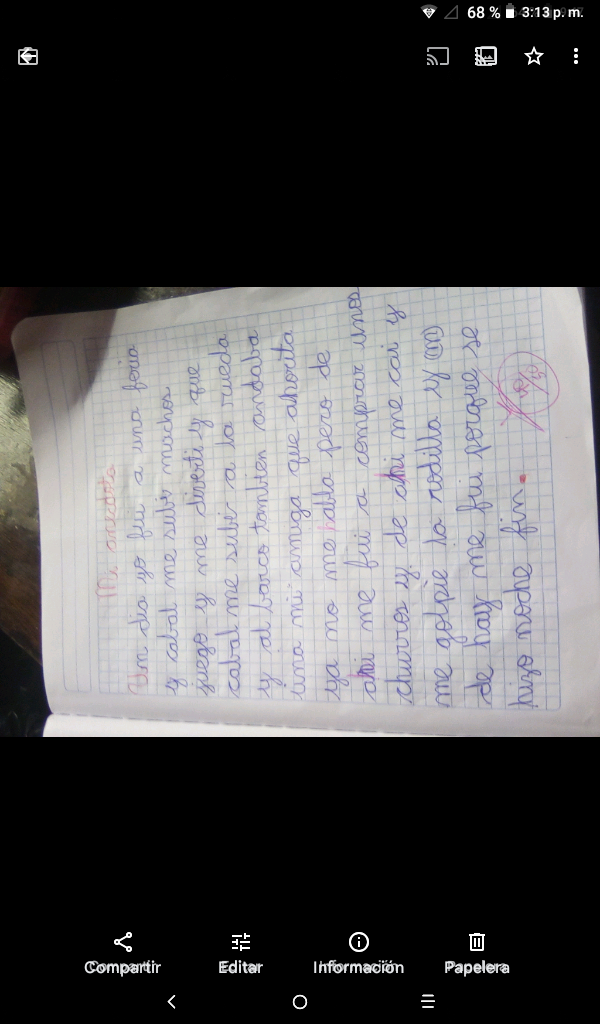 68 % 3:13 p. m.
Mi anecdota
Un dia yo fui a una feria
y cabal me subi muchos
juego y me diverti y que
cabal me subi a la rueda
y al barco tambien andaba
una mi amiga que ahorita
ya no me habla pero de
ahi me fui a comprar unos
churros y de ahi me cai y
me golpie la rodilla y (m)
de hay me fui porque se
hizo noche fin.
Compartir
Editar
Información
Papelera